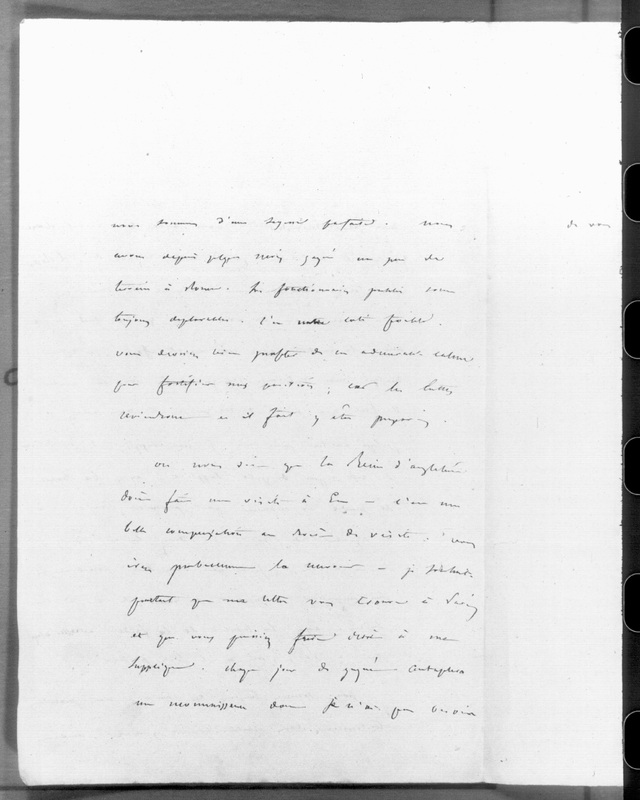 nous sommes d'une sagesse parfaite. nous
avons depuis quelque mois gagné un peu de
terrain à Rome. Les fonctionnaires publics sont
toujours déplorables. C'est notre coté faible.
vous devriez bien profiter de cet admirable calme
pour fortifier nos positions, car les luttes
reviendront et il faut y être préparé.
on nous dit que la Reine d'angleterre
doit faire une visite à Eu – c'est une
belle compensation au droit de visite. nous
irons probablement la recevoir – je souhaite
pourtant que ma lettre vous trouve à
et que vous puissiez faire droit à ma
supplique. chaque jour de gagné
ma reconnaissance dont je n'ai pas besoin
de vous